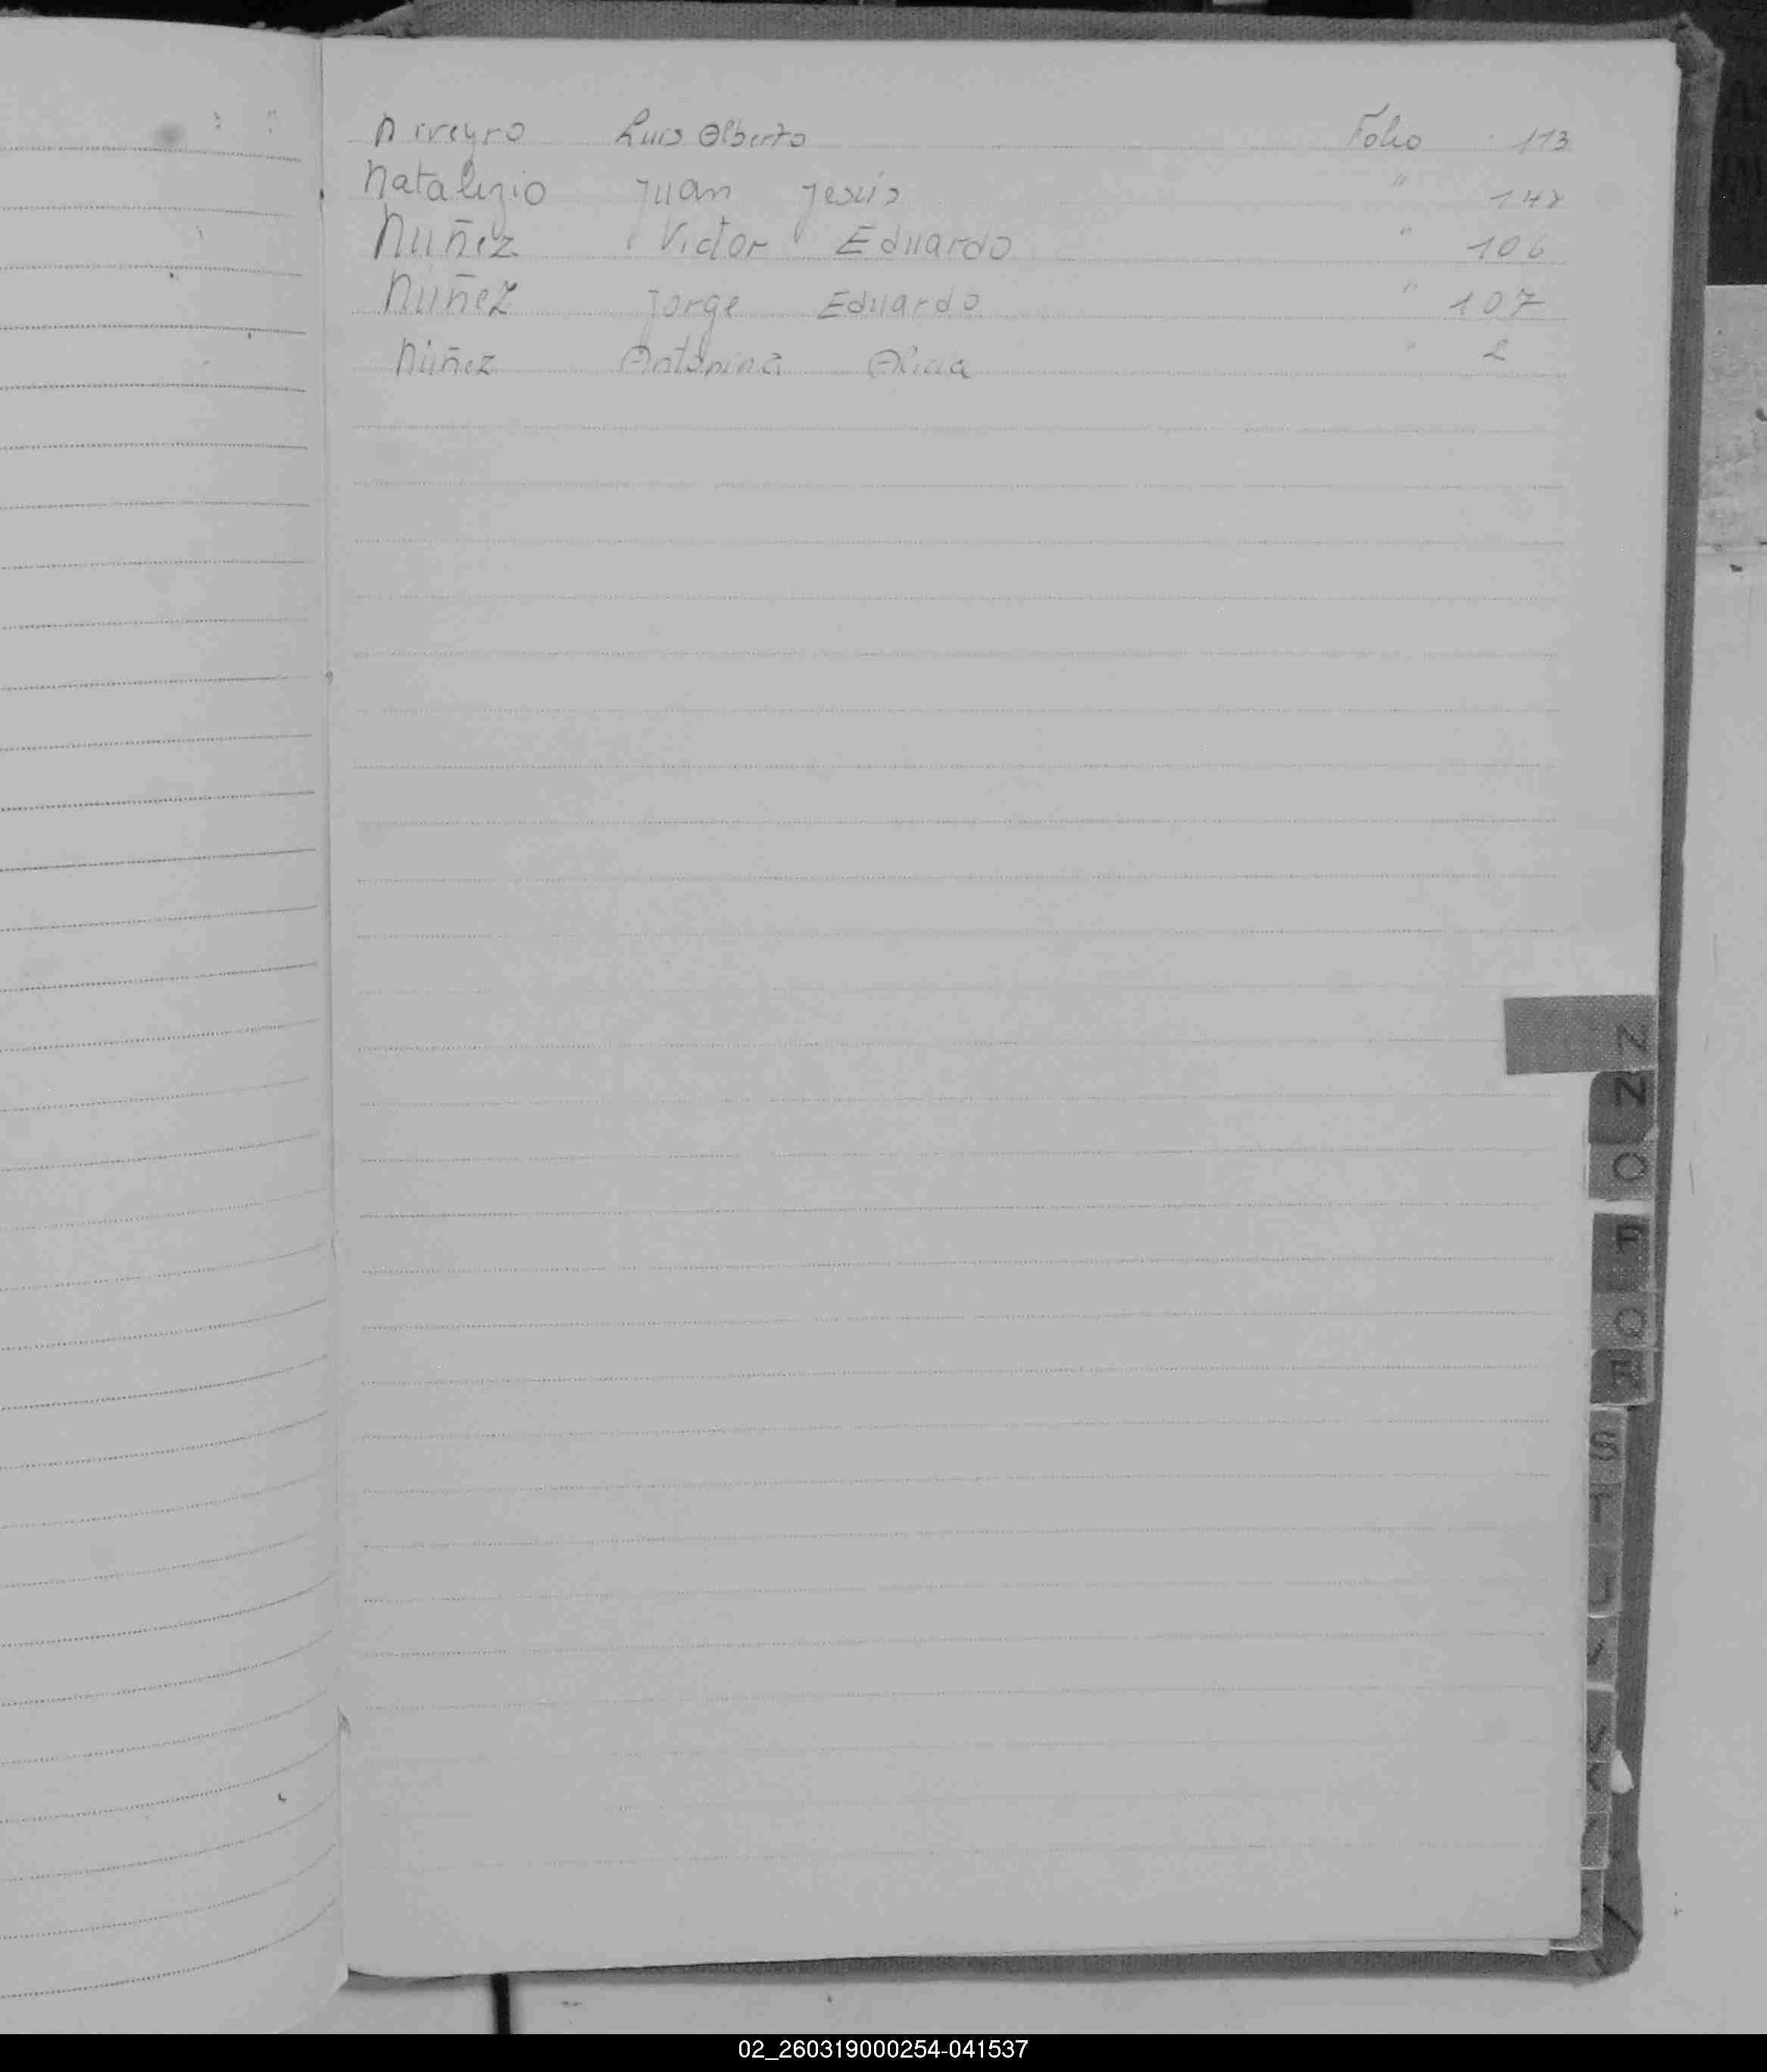 Nireyro Luis Alberto Folio 113
Natalizio Juan Jesús " 148
Nuñez Victor Eduardo " 106
Nuñez Jorge Eduardo " 107
Nuñez Antonina Alicia " 2
N
N
O
P
Q
R
S
T
U
V
02_260319000254-041537